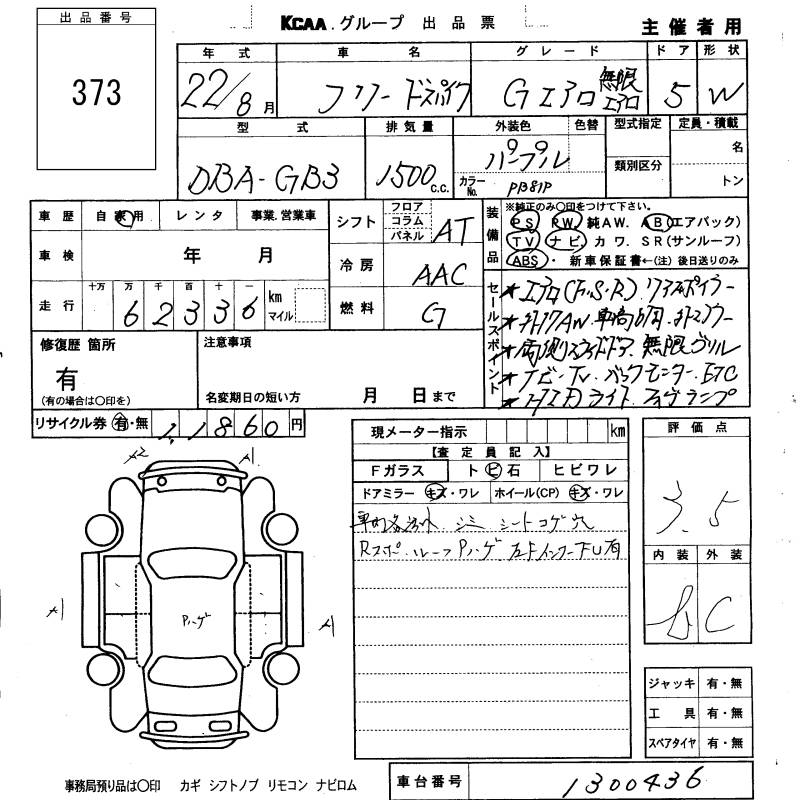 出品番号
373
KCAA.グループ 出品票
主催者用
年式 車名 グレード ドア 形状
22/8月 フリードスパイク Gエアロ 無限エアロ 5 W
型式 排気量 外装色 色替 型式指定 定員・積載
DBA-GB3 1500 c.c. パープル
カラーNo. PB81P
類別区分
名
トン
車歴 自家用 レンタ 事業.営業車
車検 年 月
走行 十万 万 千 百 十 一
62336 km マイル
シフト フロア コラム パネル AT
冷房 AAC
燃料 G
装備品
※純正のみ〇印をつけて下さい。
PS PW 純AW. AB(エアバック)
TV ナビ カワ. SR(サンルーフ)
ABS ・ 新車保証書←(注) 後日送りのみ
セールスポイント
★エアロ(F.S.R).リアスポイラー
★社外17AW 車高調.社外マフラー
★両側スライドドア.無限グリル
★ナビ・TV.バックモニター.ETC
★HIDライト.フォグランプ
修復歴 箇所
有
(有の場合は〇印を)
注意事項
名変期日の短い方 月 日まで
リサイクル券 有・無 11860円
現メーター指示 km
【査定員記入】
Fガラス トビ石 ヒビワレ
ドアミラー キズ・ワレ ホイール(CP) キズ・ワレ
シミ シートコゲ穴
Rスポ.ルーフPハゲ 有
評価点
3.5
内装 外装
C
A2 A1
A1
Pハゲ
A1
ジャッキ 有・無
工具 有・無
スペアタイヤ 有・無
事務局預り品は〇印 カギ シフトノブ リモコン ナビロム
車台番号 1300436